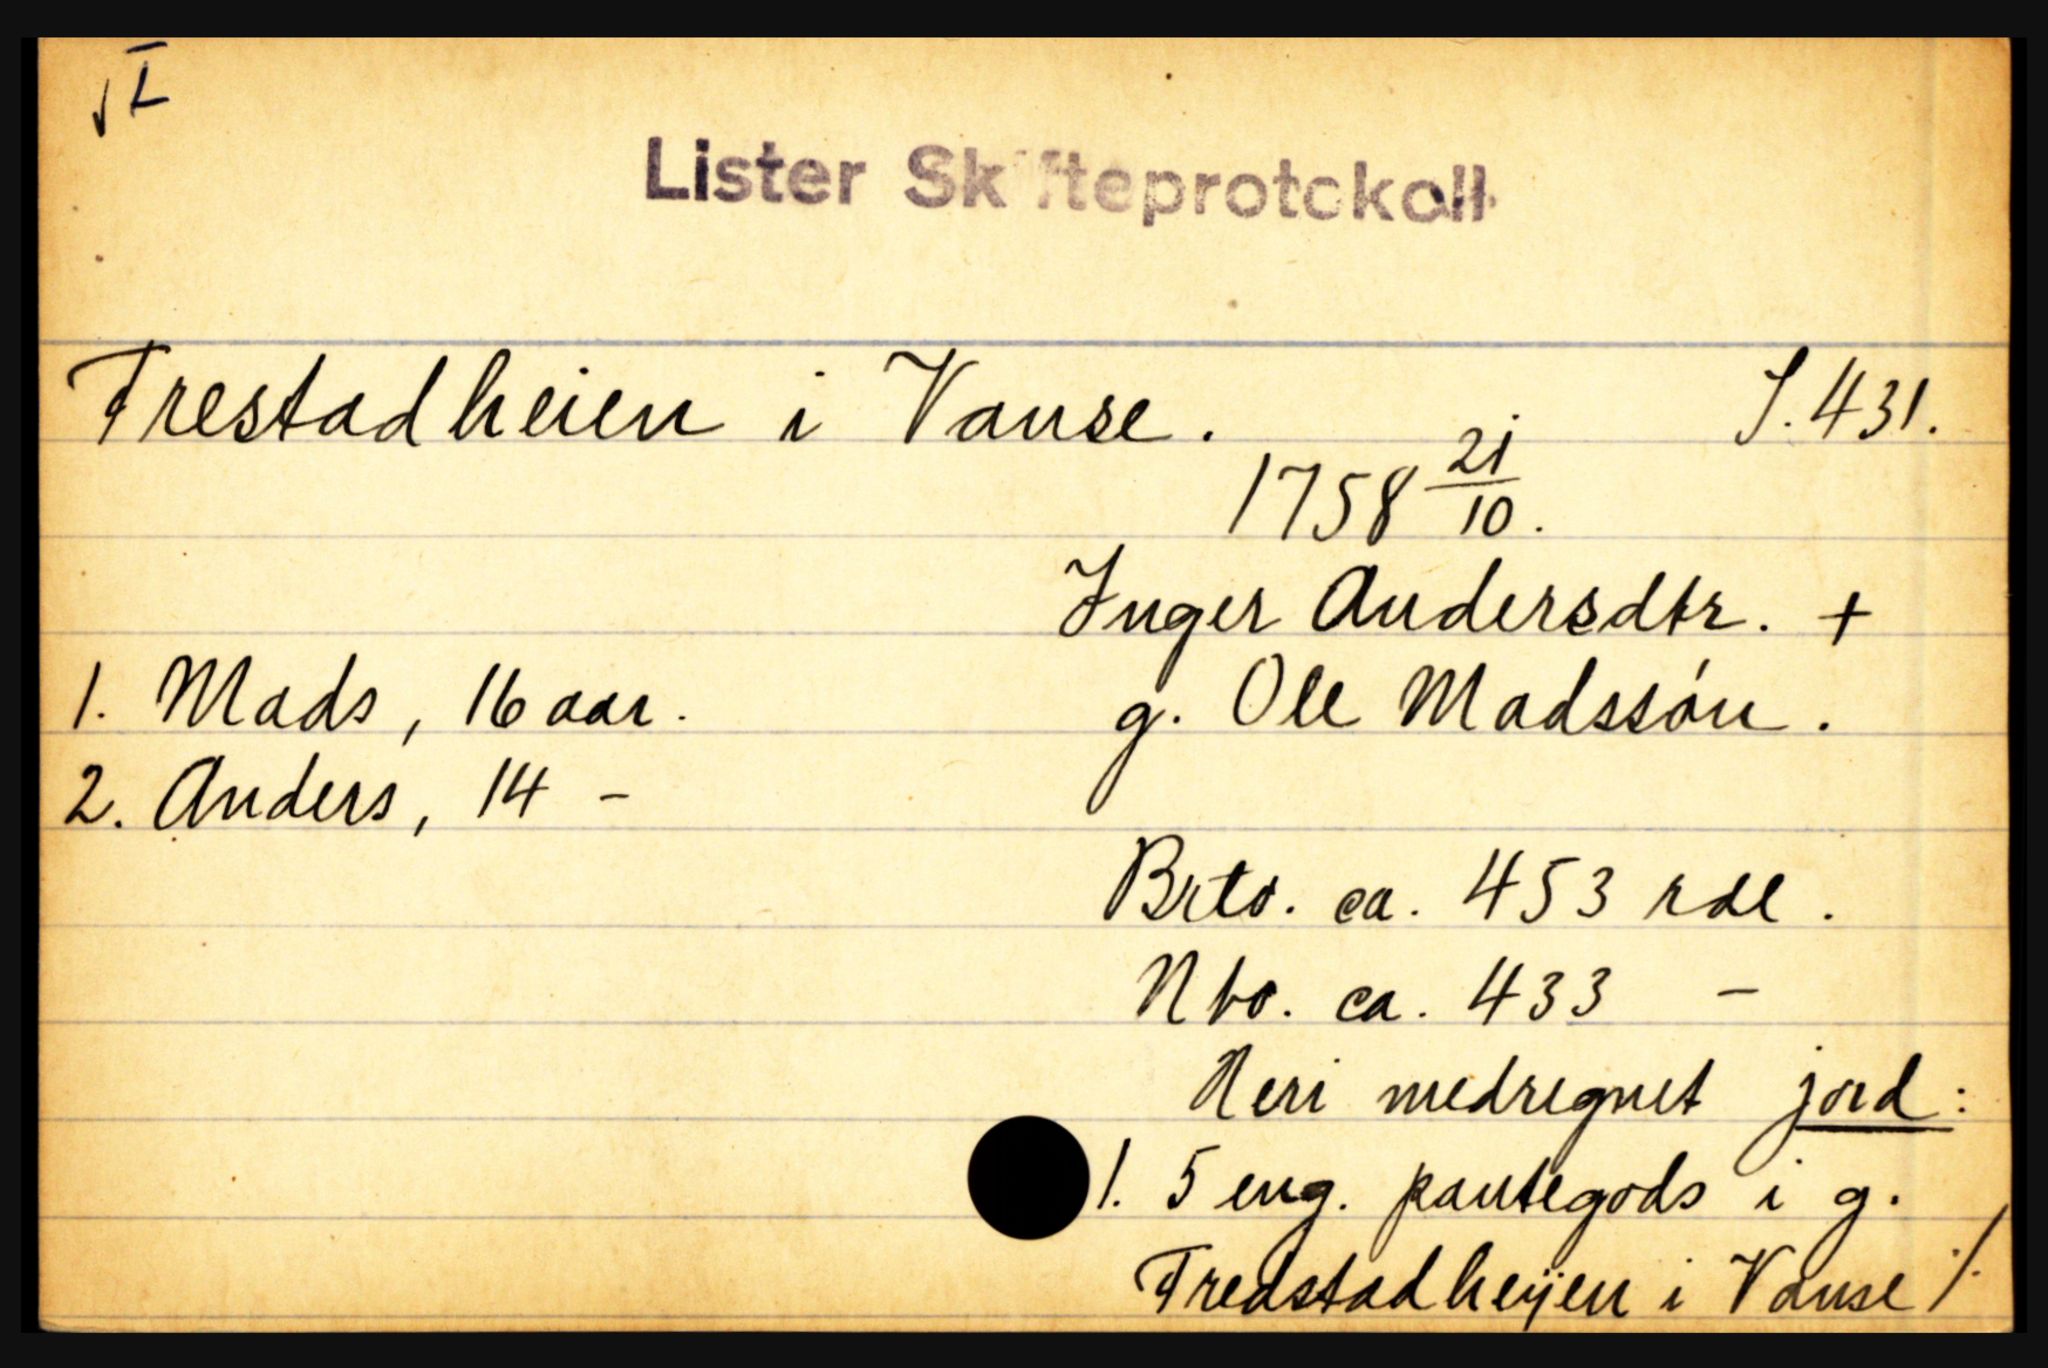 √ I
Lister Skifteprotokoll
Frestadheien i Vanse. S. 431.
1758 21/10.
Inger Andersdtr. +
1. Mads, 16 aar. g. Ole Madssøn.
2. Anders, 14 -
Brto. ca. 453 rdl.
Nto. ca. 433 -
Heri medregnet jord:
1. 5 eng. pantegods i g.
Fredstadheijen i Vanse ./.